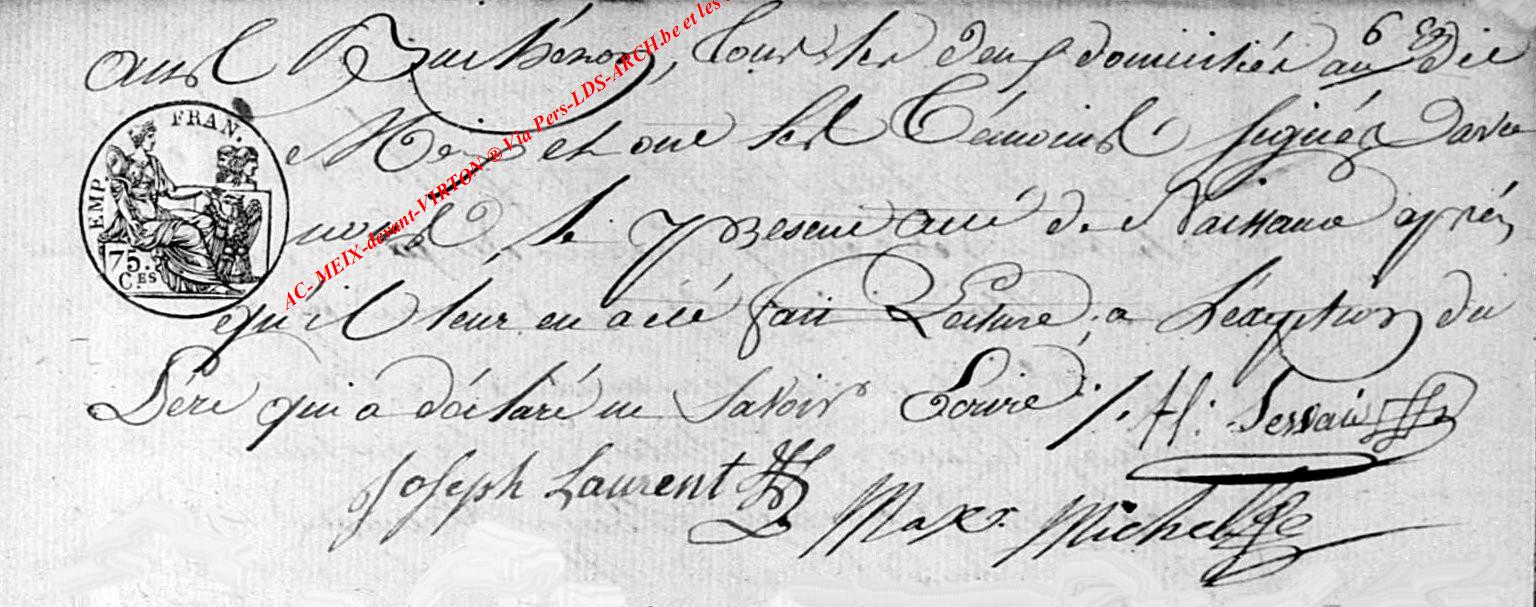 6 Er
ans Vigneron, tous les deux domiciliés au dit
Meix et ont les témoins signés avec
nous le present acte de Naissance après
qu'il leur en a été fait Lecture, a L'exception du
Père qui a déclaré ne Savoir Ecrire ./. H. Servais
Joseph Laurent Marx Michel
EMP. FRAN.
75. C.ES
AC- MEIX-devant-VIRTON ® Via Pers-LDS-ARCH.be et les